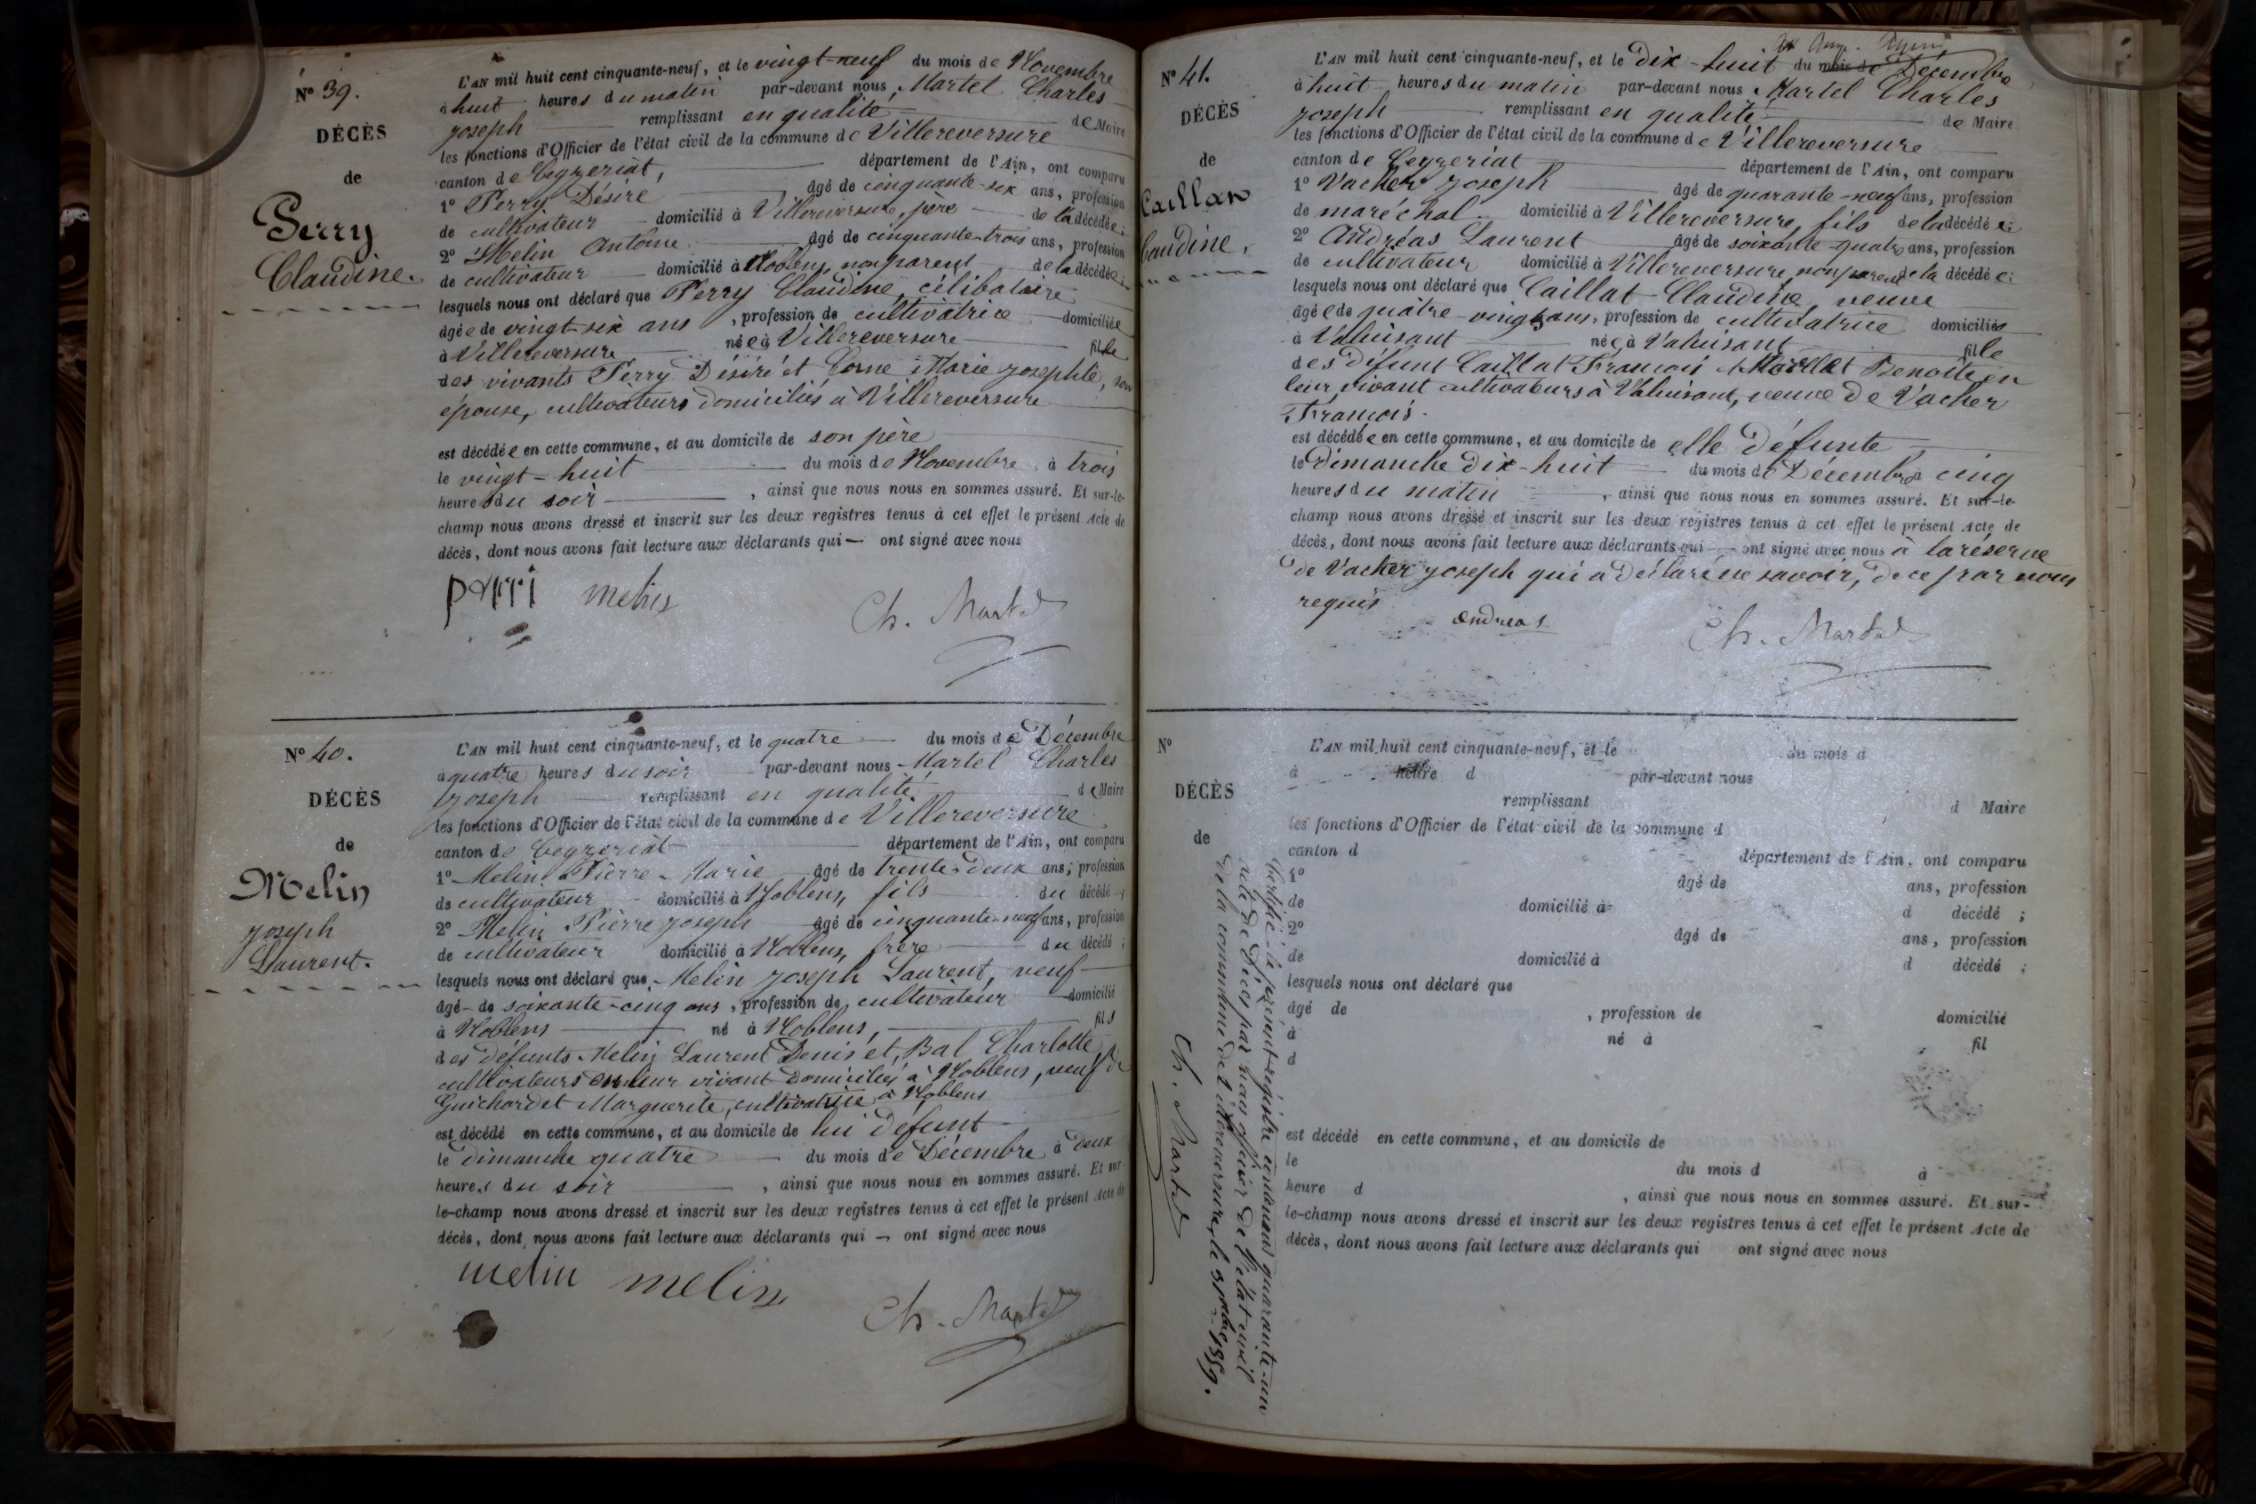 Nº 39.
DÉCÈS
de
Perry
Claudine.
L'AN mil huit cent cinquante-neuf, et le vingt-neuf du mois de Novembre
à huit heures du matin par-devant nous, Martel Charles
Joseph remplissant en qualité de Maire
les fonctions d'Officier de l'état civil de la commune de Villereversure
canton de Ceyzeriat, département de l'Ain, ont comparu
1º Perry Désiré âgé de cinquante-six ans, profession
de cultivateur domicilié à Villereversure, père de la décédée;
2º Melin Antoine âgé de cinquante-trois ans, profession
de cultivateur domicilié à Noblens, non parent de la décédée;
lesquels nous ont déclaré que Perry Claudine, célibataire
âgée de vingt-six ans, profession de cultivatrice domiciliée
à Villereversure née à Villereversure fille
des vivants Perry Désiré et Marie Josephte, son
épouse, cultivateurs domiciliés à Villereversure
est décédée en cette commune, et au domicile de son père
le vingt-huit du mois de Novembre, à trois
heures du soir, ainsi que nous nous en sommes assuré. Et sur-le-
champ nous avons dressé et inscrit sur les deux registres tenus à cet effet le présent Acte de
décès, dont nous avons fait lecture aux déclarants qui — ont signé avec nous
perri melin Ch. Martel
Nº 40.
DÉCÈS
de
Melin
Joseph
Laurent.
L'AN mil huit cent cinquante-neuf, et le quatre du mois de Décembre
à quatre heures du soir par-devant nous Martel Charles
Joseph remplissant en qualité de Maire
les fonctions d'Officier de l'état civil de la commune de Villereversure
canton de Ceyzeriat département de l'Ain, ont comparu
1º Melin Pierre Marie âgé de trente-deux ans; profession
de cultivateur domicilié à Noblens, fils du décédé;
2º Melin Pierre Joseph âgé de cinquante-neuf ans, profession
de cultivateur domicilié à Noblens, frère du décédé;
lesquels nous ont déclaré que Melin Joseph Laurent, veuf
âgé de soixante-cinq ans, profession de cultivateur domicilié
à Noblens né à Noblens, fils
des défunts Melin Laurent Denis et Bal Charlotte,
cultivateurs en leur vivant domiciliés à Noblens, veuf de
Guichardet Marguerite, cultivatrice à Noblens
est décédé en cette commune, et au domicile de lui défunt
le dimanche quatre du mois de Décembre à deux
heures du soir, ainsi que nous nous en sommes assuré. Et sur-
le-champ nous avons dressé et inscrit sur les deux registres tenus à cet effet le présent Acte de
décès, dont nous avons fait lecture aux déclarants qui — ont signé avec nous
melin melin Ch. Martel
Nº 41.
DÉCÈS
de
Caillat
Claudine.
L'AN mil huit cent cinquante-neuf, et le Dix-huit du mois de Décembre
à huit heures du matin par-devant nous Martel Charles
Joseph remplissant en qualité de Maire
les fonctions d'Officier de l'état civil de la commune de Villereversure
canton de Ceyzeriat département de l'Ain, ont comparu
1º Vacher Joseph âgé de quarante-neuf ans, profession
de maréchal domicilié à Villereversure, fils de la décédée;
2º Andréas Laurent âgé de soixante-quatre ans, profession
de cultivateur domicilié à Villereversure, non parent de la décédée;
lesquels nous ont déclaré que Caillat Claudine, veuve
âgée de quatre-vingts ans, profession de cultivatrice domiciliée
à Valuisant née à Valuisant fille
des défunt Caillat François et Benoite, en
leur vivant cultivateurs à Valuisant, veuve de Vacher
François.
est décédée en cette commune, et au domicile de elle défunte
le Dimanche Dix-huit du mois de Décembre à cinq
heures du matin, ainsi que nous nous en sommes assuré. Et sur-le-
champ nous avons dressé et inscrit sur les deux registres tenus à cet effet le présent Acte de
décès, dont nous avons fait lecture aux déclarants qui — ont signé avec nous à la réserve
de Vacher Joseph qui a déclaré ne savoir, de ce par nous
requis
andreas Ch. Martel
Nº
DÉCÈS
de
L'AN mil huit cent cinquante-neuf, et le du mois d
à heure d par-devant nous
remplissant d Maire
les fonctions d'Officier de l'état civil de la commune d
canton d département de l'Ain, ont comparu
1º âgé de ans, profession
de domicilié à d décédé ;
2º âgé de ans, profession
de domicilié à d décédé ;
lesquels nous ont déclaré que
âgé de , profession de domicilié
à né à fil
d
est décédé en cette commune, et au domicile de
le du mois d à
heure d , ainsi que nous nous en sommes assuré. Et sur-
le-champ nous avons dressé et inscrit sur les deux registres tenus à cet effet le présent Acte de
décès, dont nous avons fait lecture aux déclarants qui ont signé avec nous
le présent registre contenant quarante-un
acte de Décès par nous officier de l'état civil
de la commune de Villereversure, le 31 Xbre 1859.
Ch. Martel